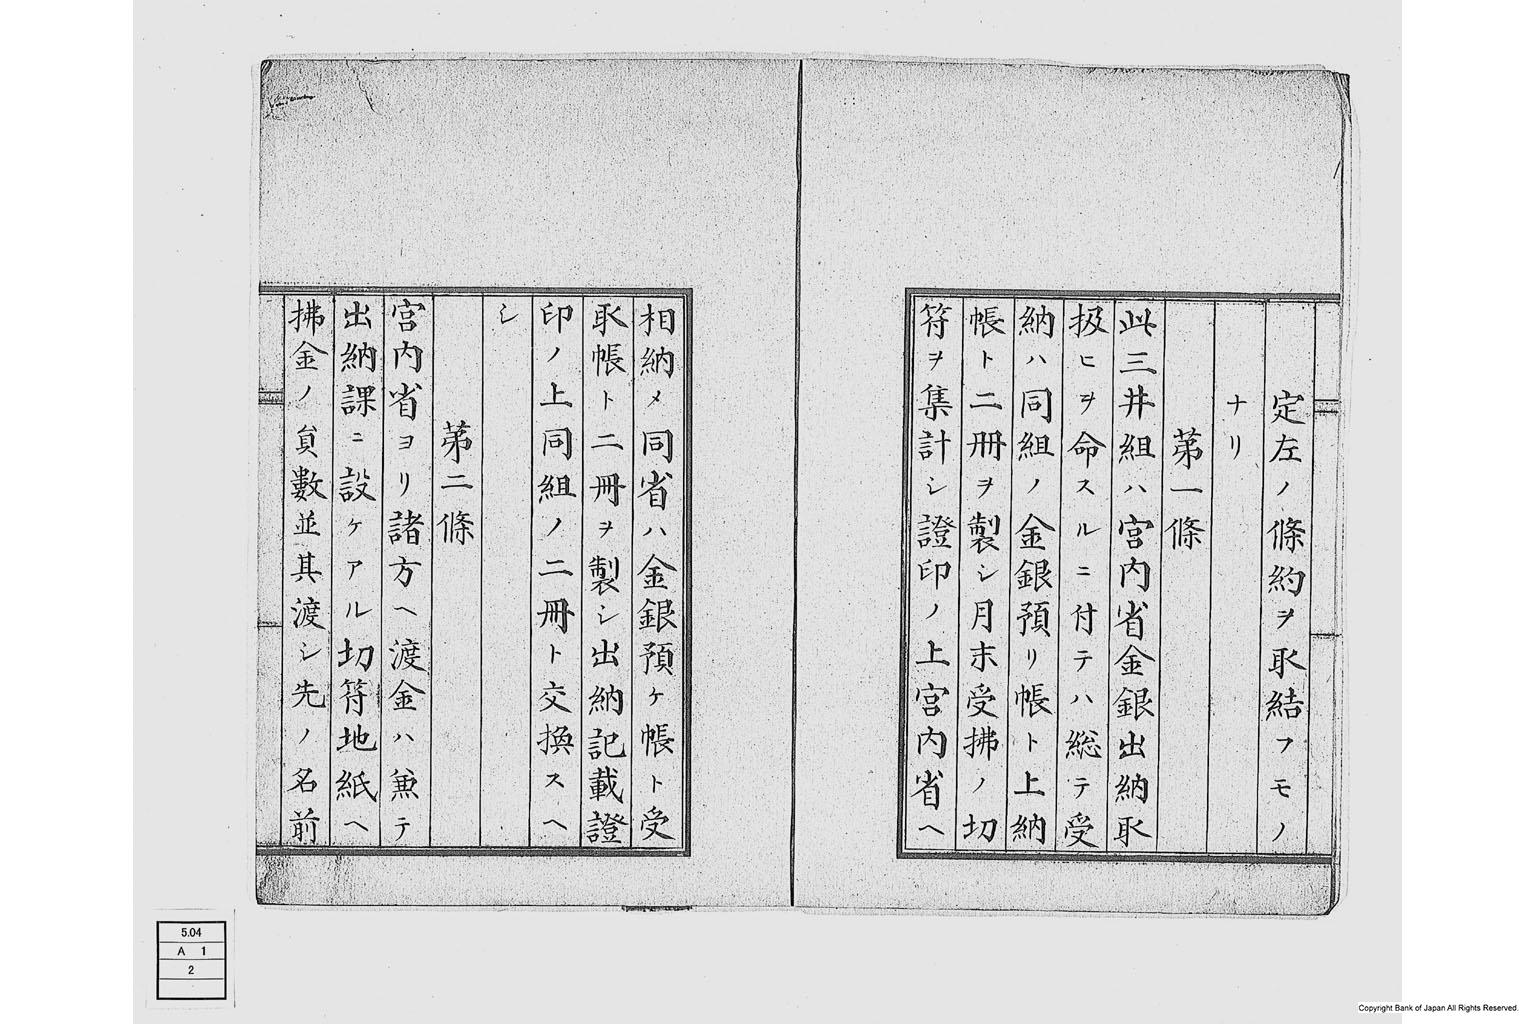 定左ノ條約ヲ取結フモノ
ナリ
第一條
此三井組ハ宮内省金銀出納取
扱ヒヲ命スルニ付テハ総テ受
納ハ同組ノ金銀預リ帳ト上納
帳ト二冊ヲ製シ月末受拂ノ切
符ヲ集計シ證印ノ上宮内省ヘ
相納メ同省ハ金銀預ケ帳ト受
取帳ト二冊ヲ製シ出納記載證
印ノ上同組ノ二冊ト交換スヘ
シ
第二條
宮内省ヨリ諸方ヘ渡金ハ兼テ
出納課ニ設ケアル切符地紙ヘ
拂金ノ員數並其渡シ先ノ名前
5.04
A 1
2
Copyright Bank of Japan All Rights Reserved.